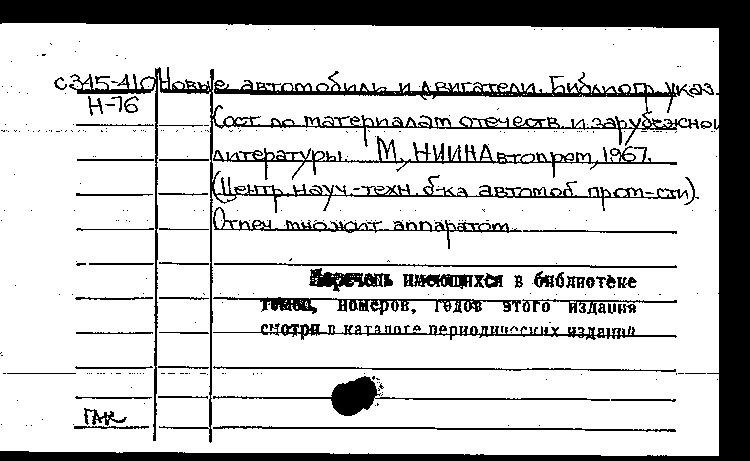 с345-410 Новые автомобили и двигатели. Библиогр. указ.
Н-76
Сост. по материалам отечеств. и зарубежной
литературы. М., НИИНАвтопром, 1967.
(Центр. науч.-техн. б-ка автомоб. пром-сти).
Отпеч. множит. аппаратом.
Перечень имеющихся в библиотеке
томов, номеров, годов этого издания
смотри в каталоге периодических изданий
ГАК